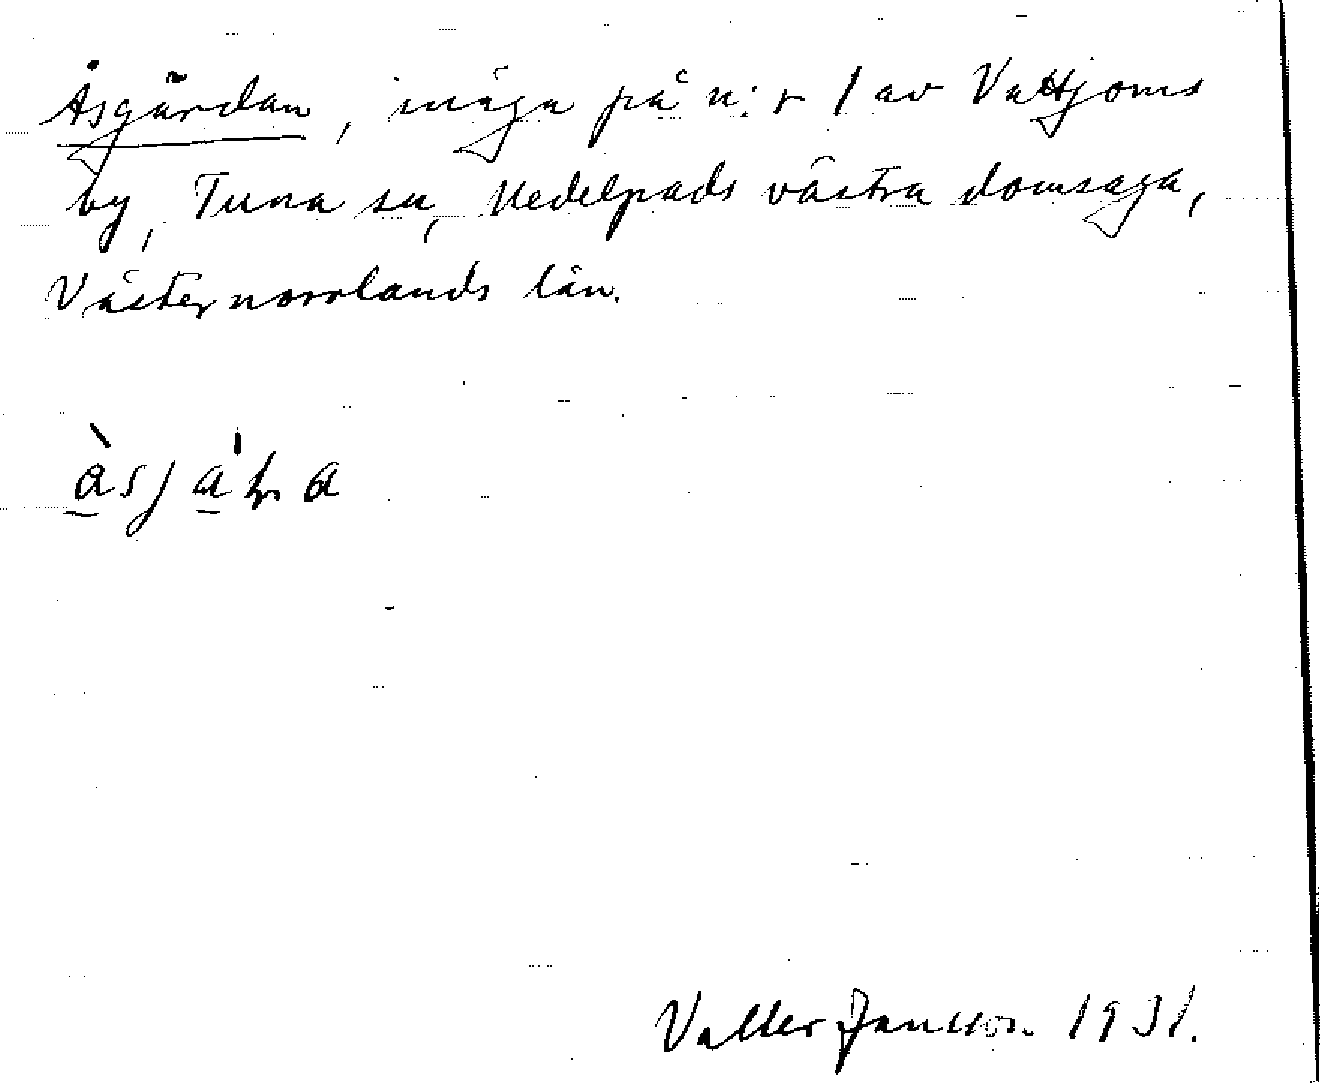 Åsgärdan, inäga på n:r 1 av Vattjoms
by, Tuna sn, Medelpads västra domsaga,
Västernorrlands län.
Valter Jansson 1931.